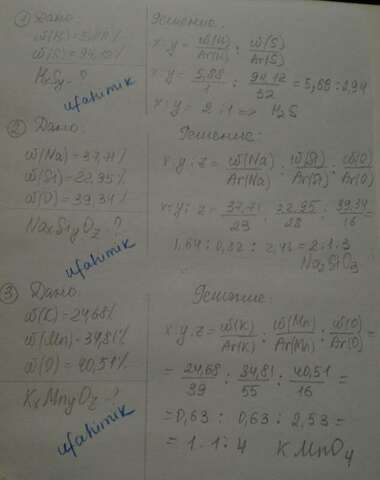 ① Дано:
ω(H) = 5,88%
ω(S) = 94,12%
HxSy - ?
ufahimik
Решение:
x : y = ω(H)/Ar(H) : ω(S)/Ar(S)
x : y = 5,88/1 : 94,12/32 = 5,88 : 2,94
x : y = 2 : 1 => H₂S
② Дано:
ω(Na) = 37,71%
ω(Si) = 22,95%
ω(O) = 39,34%
NaxSiyOz - ?
ufahimik
Решение:
x : y : z = ω(Na)/Ar(Na) : ω(Si)/Ar(Si) : ω(O)/Ar(O)
x : y : z = 37,71/23 : 22,95/28 : 39,34/16 =
1,64 : 0,82 : 2,46 = 2 : 1 : 3
Na₂SiO₃
③ Дано:
ω(K) = 24,68%
ω(Mn) = 34,81%
ω(O) = 40,51%
KxMnyOz - ?
ufahimik
Решение:
x : y : z = ω(K)/Ar(K) : ω(Mn)/Ar(Mn) : ω(O)/Ar(O) =
= 24,68/39 : 34,81/55 : 40,51/16 =
= 0,63 : 0,63 : 2,53 =
= 1 : 1 : 4 KMnO₄